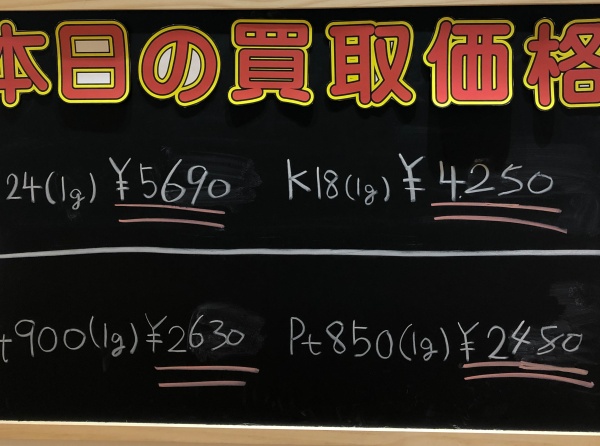 本日の買取価格
24(1g) ¥5690 K18(1g) ¥4250
t900(1g) ¥2630 Pt850(1g) ¥2480